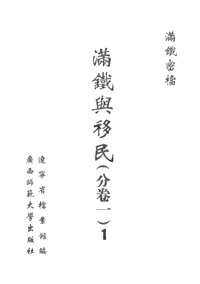 滿鐵密檔
滿鐵與移民(分卷一)1
遼寧省檔案館編
廣西師範大學出版社